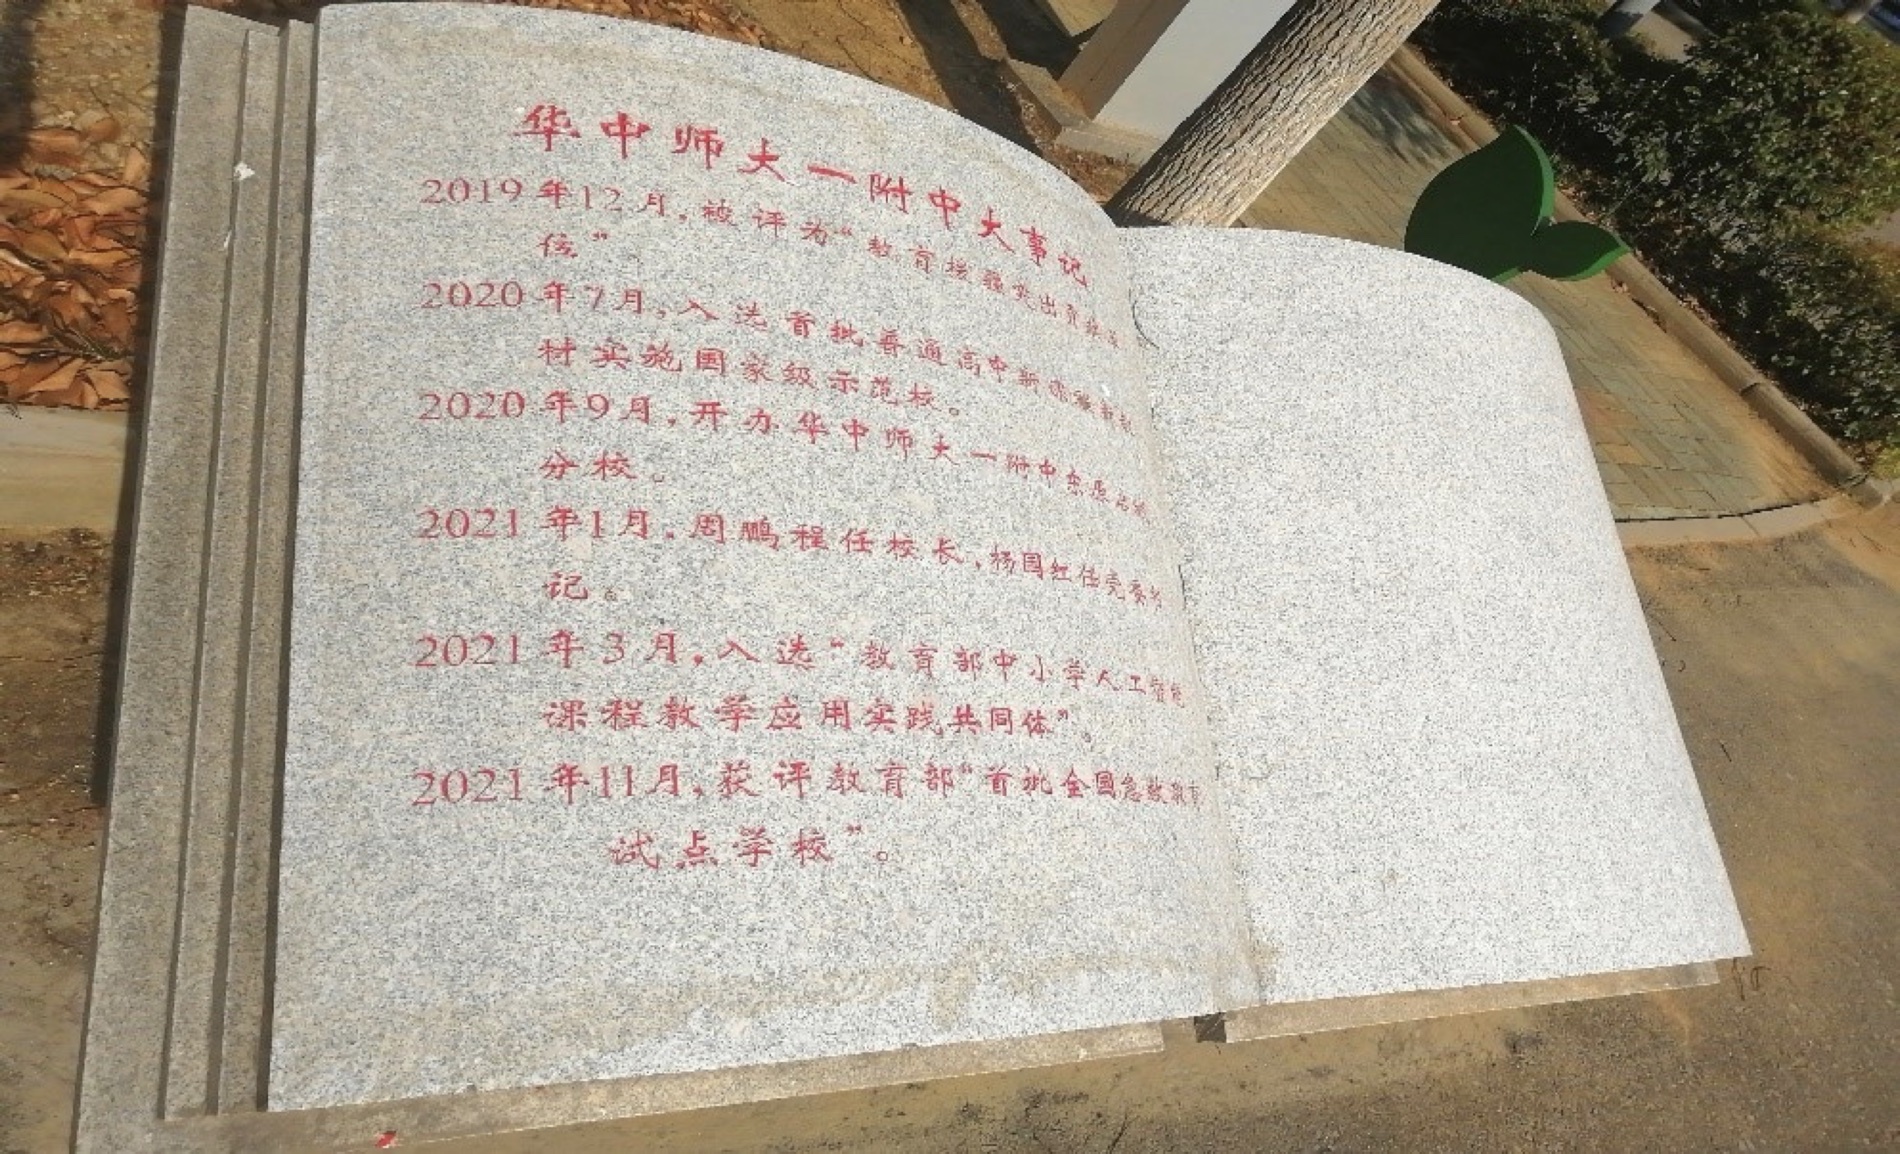 华中师大一附中大事记
2019年12月,被评为“教育援疆突出贡献单
位”
2020年7月,入选首批普通高中新课程新教
材实施国家级示范校。
2020年9月,开办华中师大一附中
分校。
2021年1月,周鹏程任校长,杨国红任党委书
记。
2021年3月,入选“教育部中小学人工智能
课程教学应用实践共同体”。
2021年11月,获评教育部“首批全国急救教育
试点学校”。